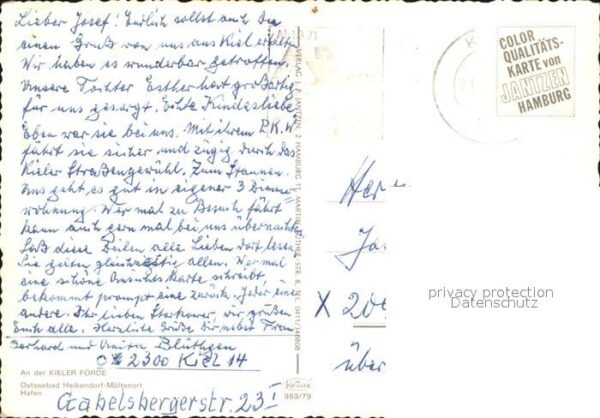 Lieber Josef! Endlich sollst auch Du
einen Gruß von uns aus Kiel erhalten
Wir haben es wunderbar getroffen.
Unsere Tochter Esther hat großartig
für uns gesorgt. Echte Kindesliebe
Eben war sie bei uns. Mit ihrem P.K.W.
fährt sie sicher und zügig durch das
Kieler Straßengewühl. Zum Staunen.
Uns geht es gut in eigener 3 Zimmer-
wohnung. Wer mal zu Besuch fährt
kann auch gern mal bei uns übernacht
Laß diese Zeilen alle Lieben dort lesen
Sie gelten gleichzeitig allen. Wer mal
eine schöne Ansichtskarte schreibt
bekommt prompt eine zurück. Jeder eine
andere. Ihr lieben wir grüßen
Euch alle. Herzliche Grüße Dir nebst Frau
Gerhard und Blüthgen
2300 KIEL 14
An der KIELER FÖRDE
Ostseebad Heikendorf-Möltenort
Hafen
Gabelsbergerstr. 23 I
VERLAG J. P. JANTZEN, 2 HAMBURG 11, MARTIN-LUTHER-STR. 8, TEL. 0411/348606
Krüger
983/79
COLOR
QUALITÄTS-
KARTE von
JANTZEN
HAMBURG
K
X 200
über
privacy protection
Datenschutz